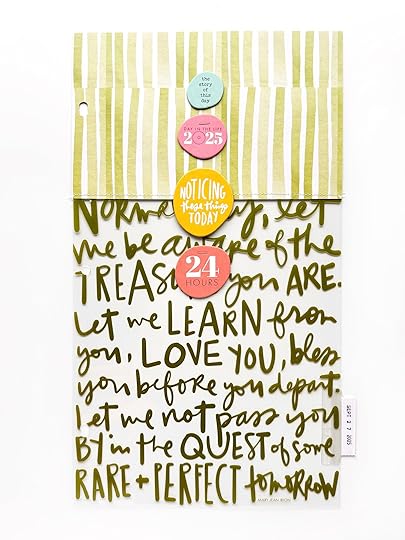 the
story
of this
day
DAY IN THE LIFE
2025
NOTICING
these things
TODAY
24
HOURS
NORMAL DAY, let
me be aware of the
TREASURE you ARE.
Let me LEARN from
you, LOVE YOU, bless
you before you depart.
Let me not pass you
BY in the QUEST of some
RARE + PERFECT tomorrow
MARY JEAN IRION
SEPT 2 7 2025